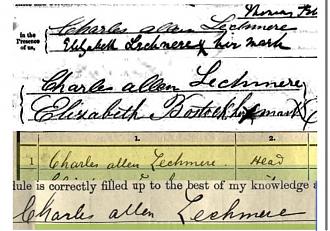 Thomas
Charles allen Lechmere
in the
Presence
of us,
Elizabeth Lechmere x her mark
Charles allen Lechmere
Elizabeth Bostock her x mark
1. 2.
1 Charles allen Lechmere. Head
ule is correctly filled up to the best of my knowledge a
Charles allen Lechmere